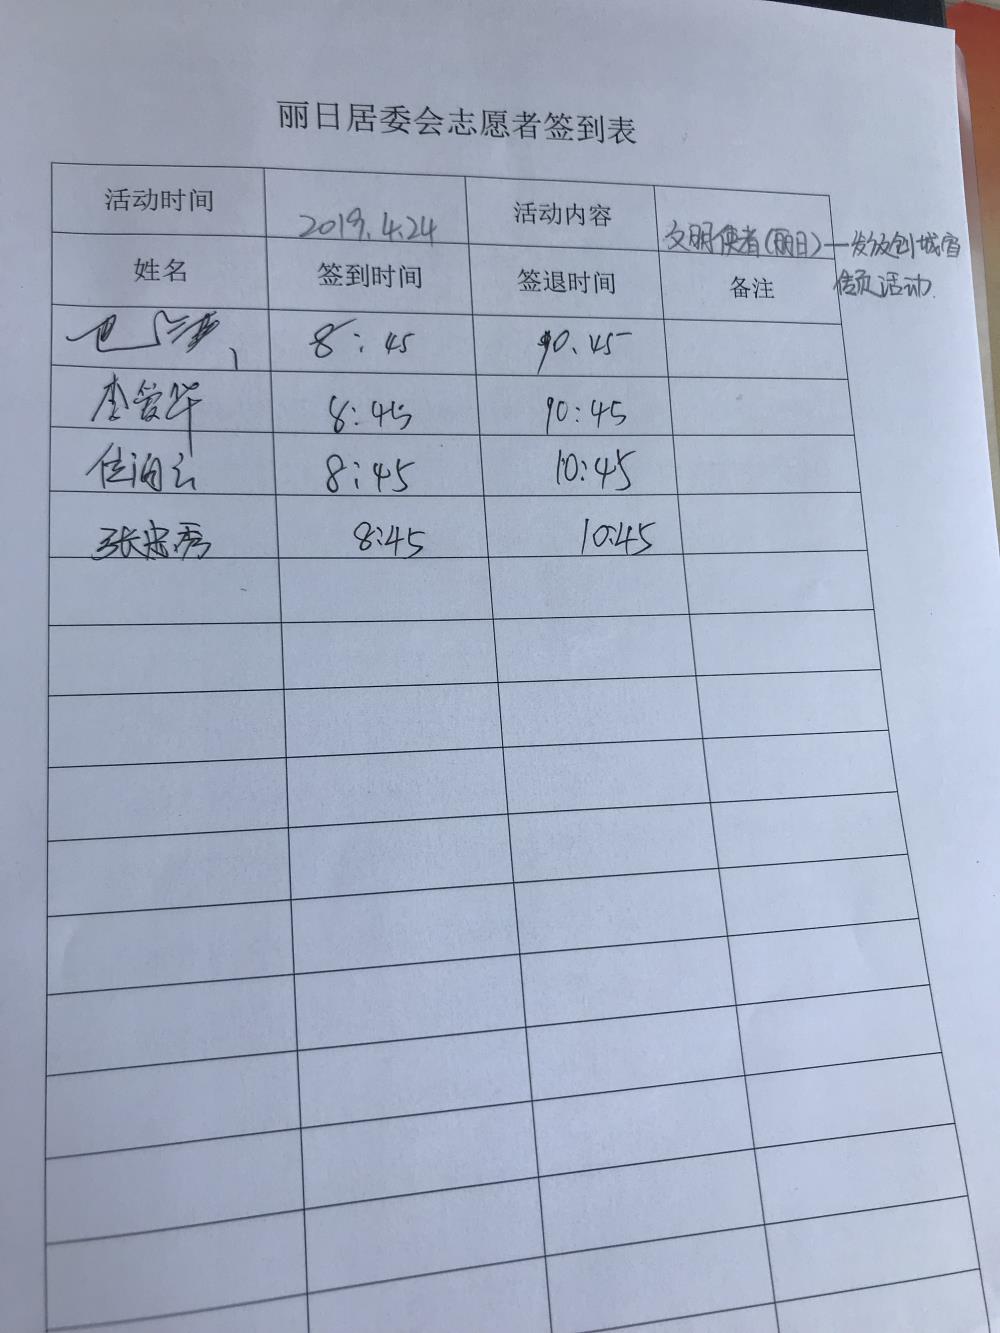 丽日居委会志愿者签到表
活动时间 2019.4.24 活动内容 文明使者(丽日)—发放创城宣
传页活动
姓名 签到时间 签退时间 备注
8:45 10.45
李爱华 8:45 10:45
8:45 10:45
张忠秀 8:45 10:45